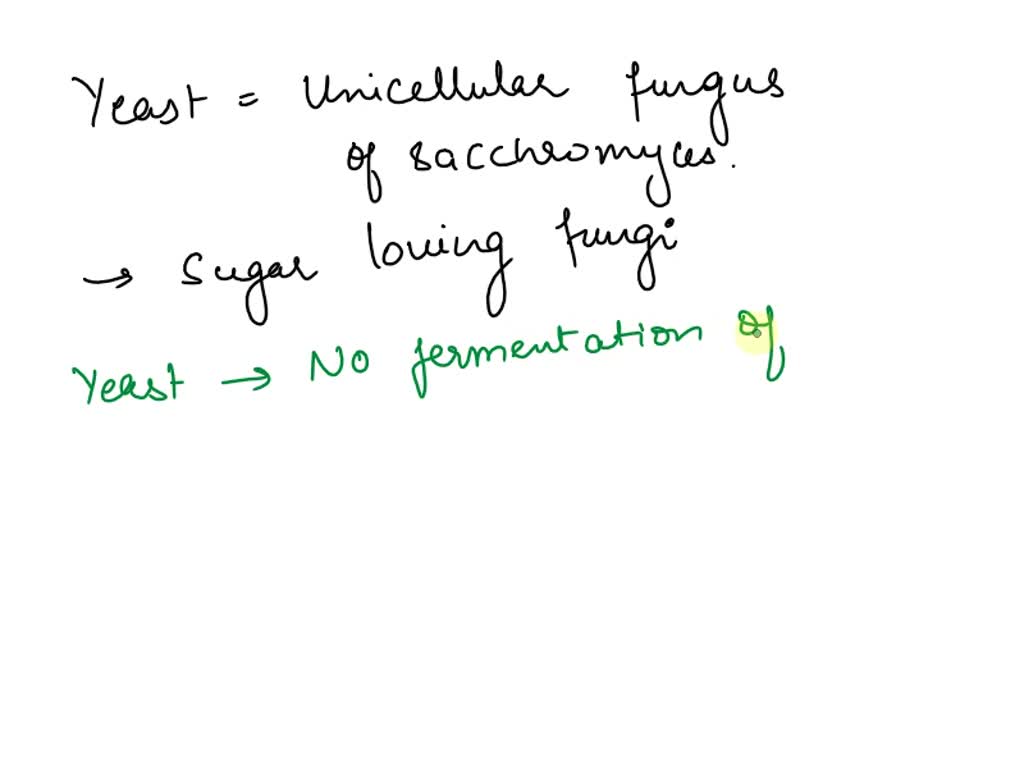 Yeast = Unicellular fungus
of saccheromyces.
→ Sugar loving fungi
Yeast → No fermentation of